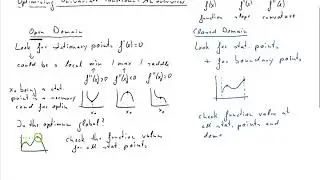 f(x) f'(x) f"(x)
function slope curvature
Open Domain
Look for stationary points f'(x)=0
could be a local min / max / saddle
f"(x₀)>0 f"(x₀)<0 f"(x₀)=0
x₀ being a stat.
point is a necessary
cond for optim
x₀ x₀ x₀
Is the optimum global?
check the function value
for all stat. points
Closed Domain
Look for stat. points
+ for boundary points
check function value at
all stat. points and